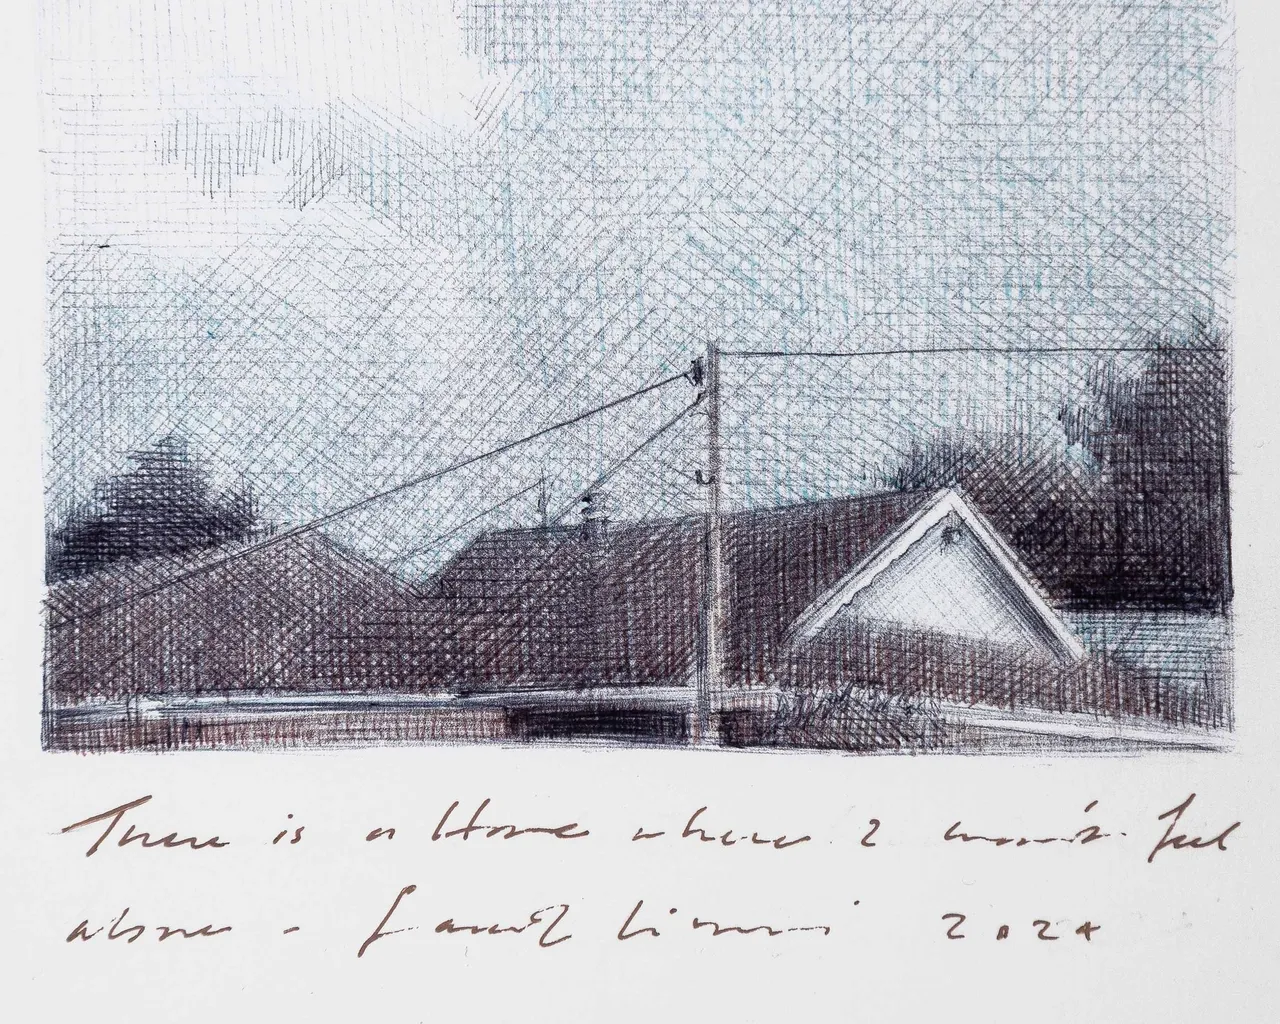 There is a Home where I won't feel
alone - 2024